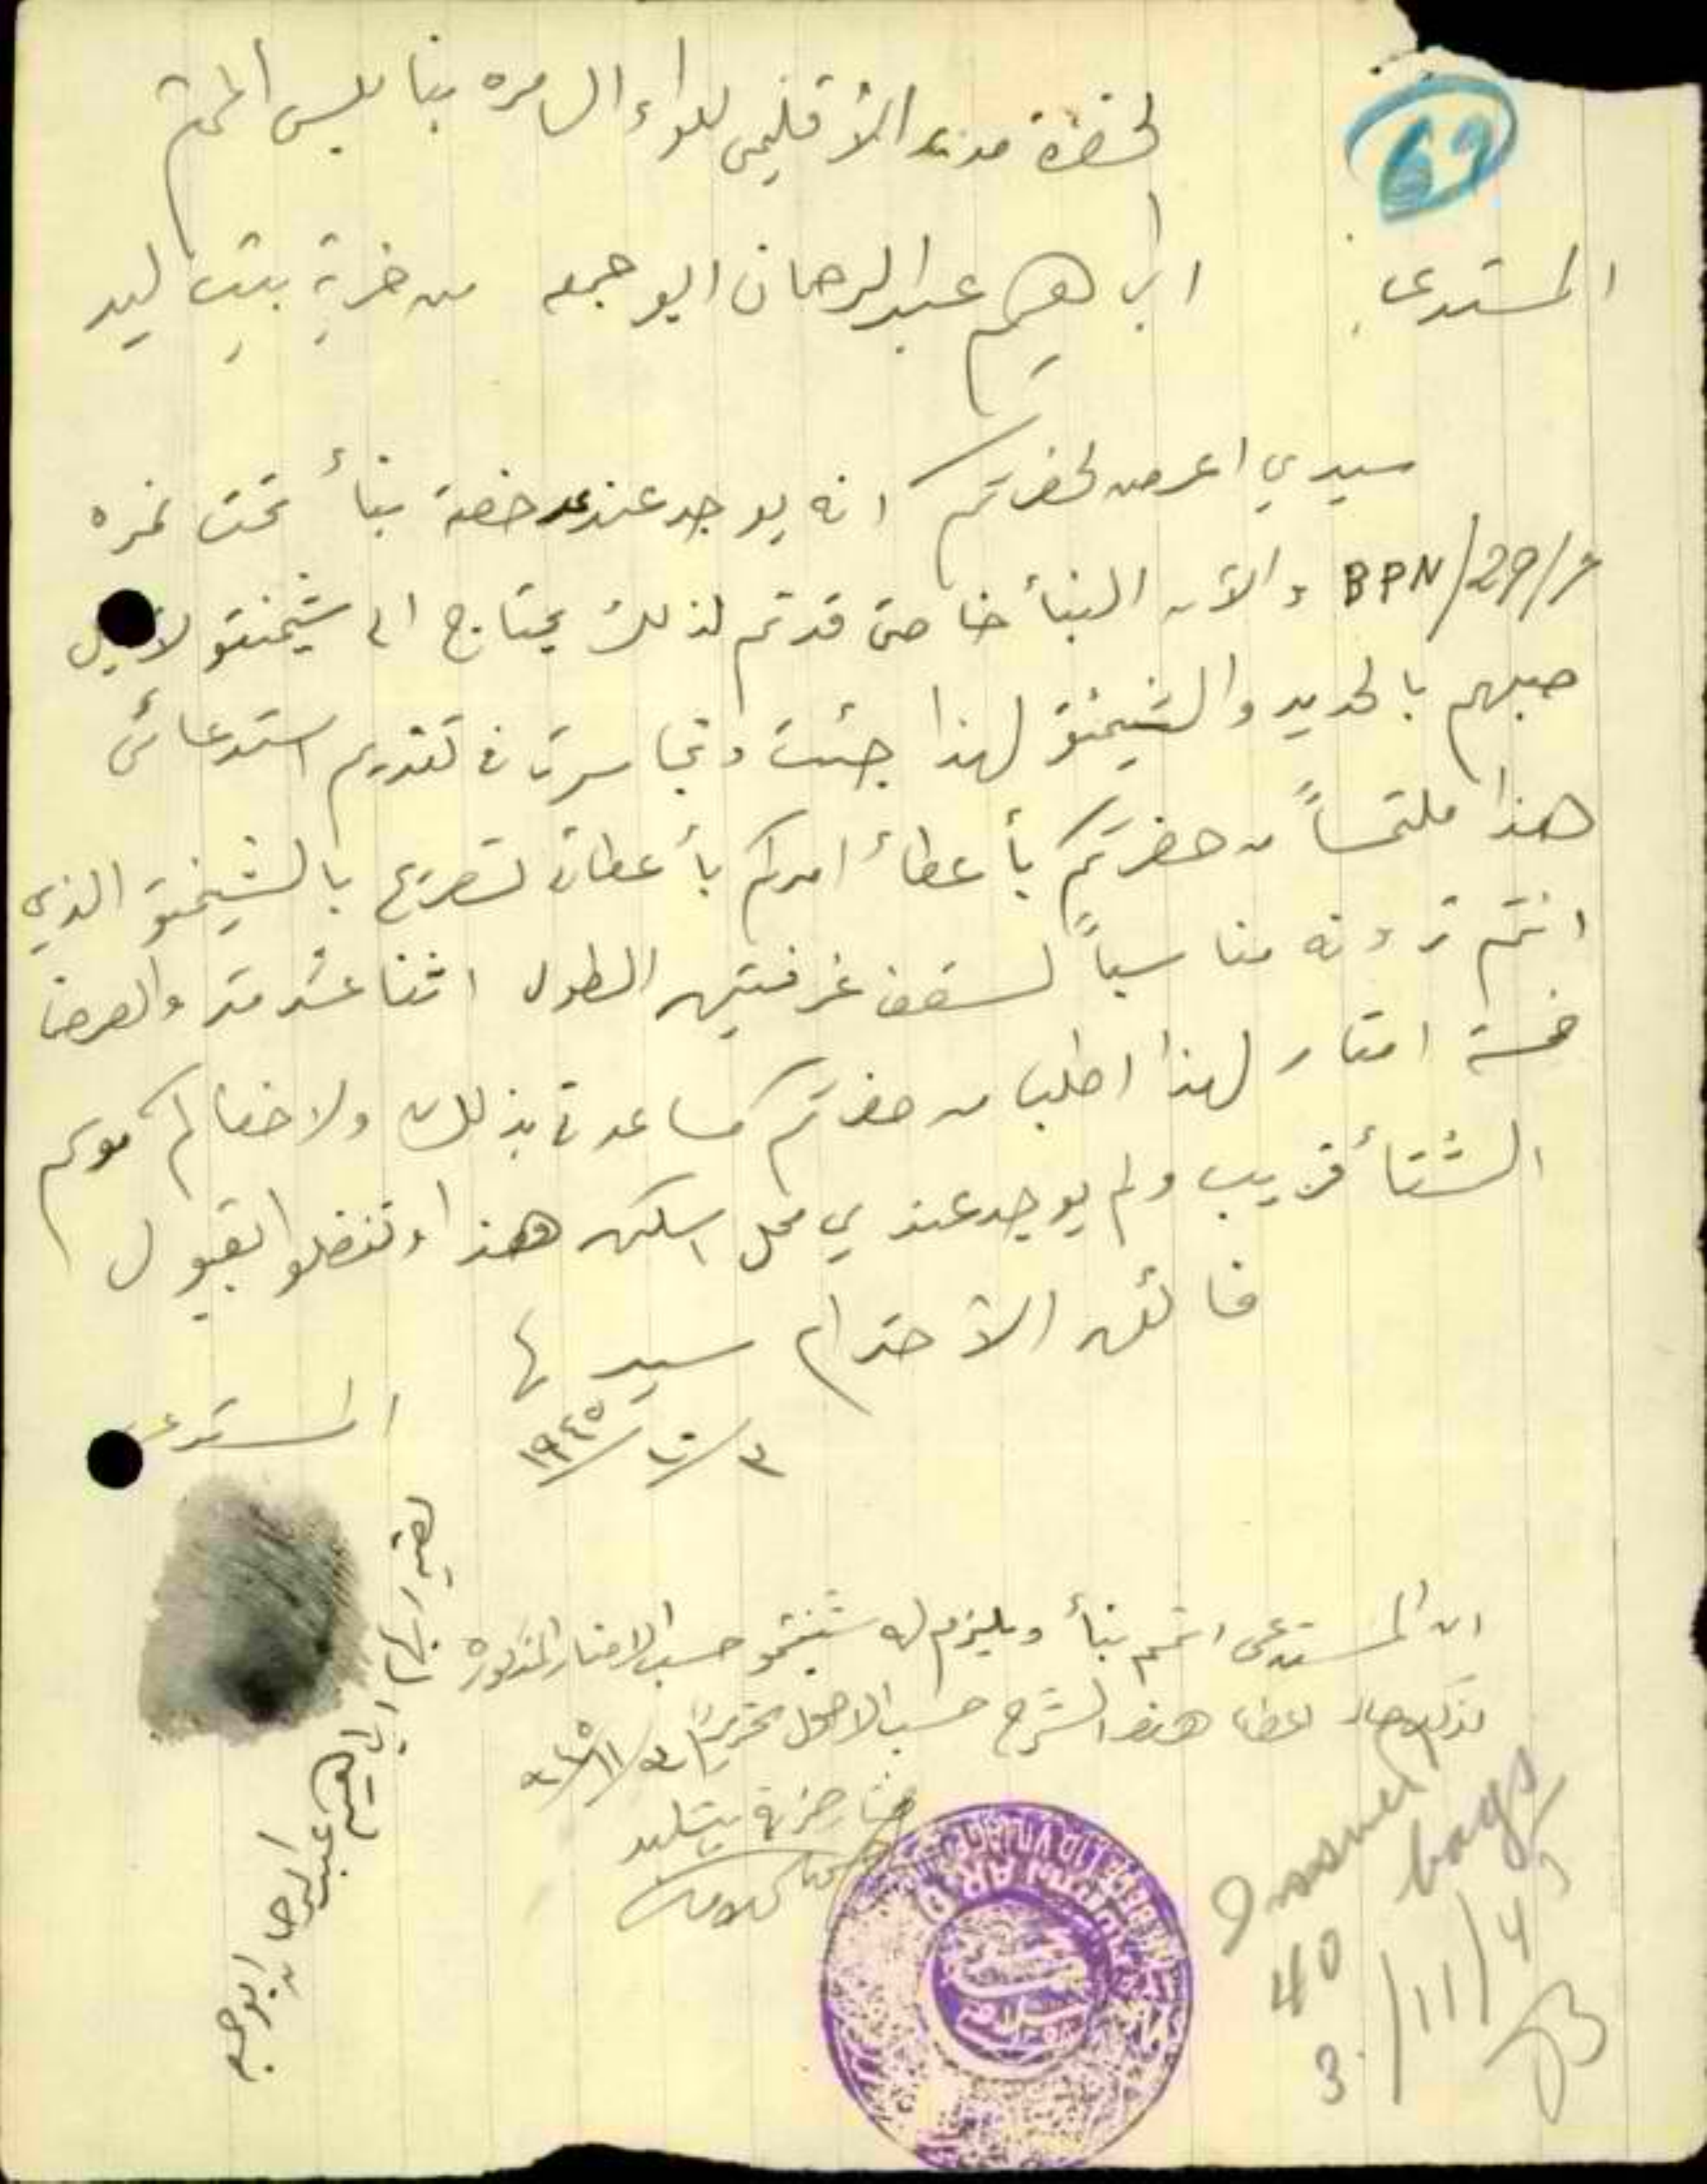 69
لحضرة مدير الأقليمي للواء السامره بنابلس المحترم
المستدعي ابراهيم عبد الرحمان ابو جمعه من خربة بيت ليد
سيدي اعرض لحضرتكم انه يوجد عندي رخصة بنأ تحت نمره
BPN/29/6 والآن البنأ خاصتي قد تم لذلك يحتاج الى شيمنتو لأجل
صبهم بالحديد والشيمنتو لهذا جئت وتجاسرت في تقديم استدعائي
هذا ملتمساً من حضرتكم بأعطأ امركم بأعطائي تصريح بالشيمنتو الذي
انتم ترونه مناسباً لسقف غرفتين الطول اثنا عشر متر والعرض
خمسة امتار لهذا اطلب من حضرتكم مساعدتي بذلك ولا خفاكم موسم
الشتأ قريب ولم يوجد عندي محل اسكن هذا وتفضلوا بقبول
فائق الاحترام سيدي
٣/١٠/١٩٤٥
المستدعي
بصمة ابهام ابراهيم عبد الرحمان ابو جمعه
ان المستدعي اتمم بنأ ويلزم له شمنتو حسب الامتار المذكوره
لذلك صار اعطا هذا الشرح حسب الاصول تحريراً
مختار خربة بيتليد
Issued
40 bags
3/11/45